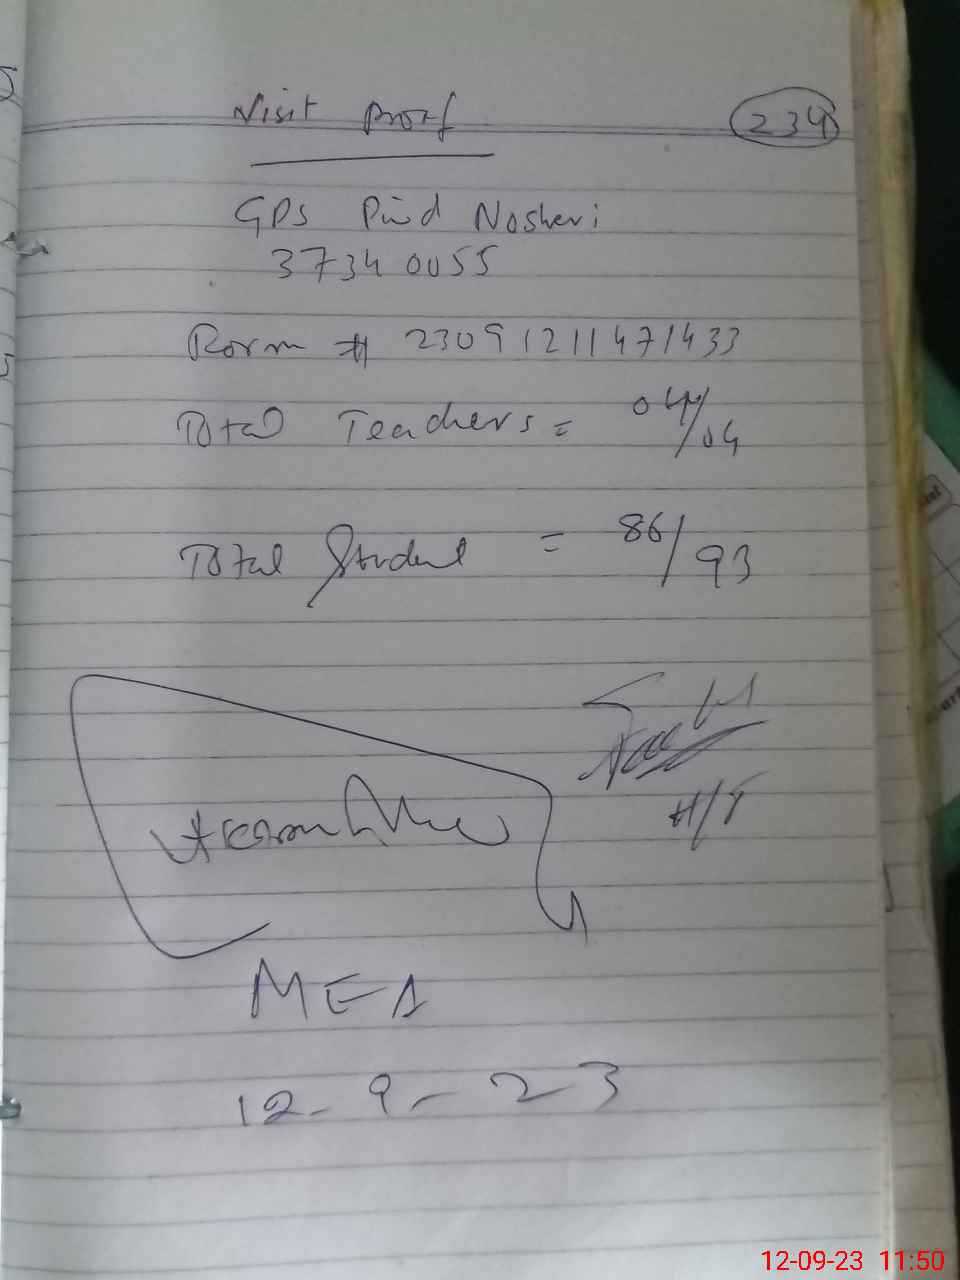 Visit Proof
234
GPS Pind Nosheri
37340055
Form # 230912111471433
Total Teachers = 04/04
Total Student = 86/93
H/T
MEA
12-9-23
12-09-23 11:50